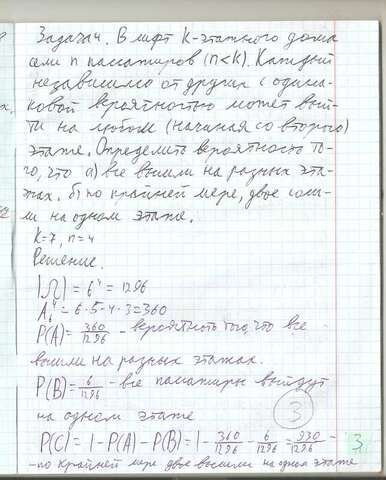 Задача 1. В лифт k-этажного дома
сели n пассажиров (n<k). Каждый
независимо от других с одина-
ковой вероятностью может вый-
ти на любом (начиная со второго)
этаже. Определить вероятность то-
го, что а) все вышли на разных эта-
жах. б) по крайней мере, двое сош-
ли на одном этаже.
k=7, n=4
Решение.
|Ω| = 6⁴ = 1296
A₆⁴ = 6·5·4·3=360
P(A)= 360/1296 - вероятность того, что все
вышли на разных этажах.
P(B)= 6/1296 - все пассажиры выйдут
на одном этаже
3
P(C) = 1-P(A)-P(B)=1- 360/1296 - 6/1296 = 930/1296 -
3
-по крайней мере двое вышли на одном этаже